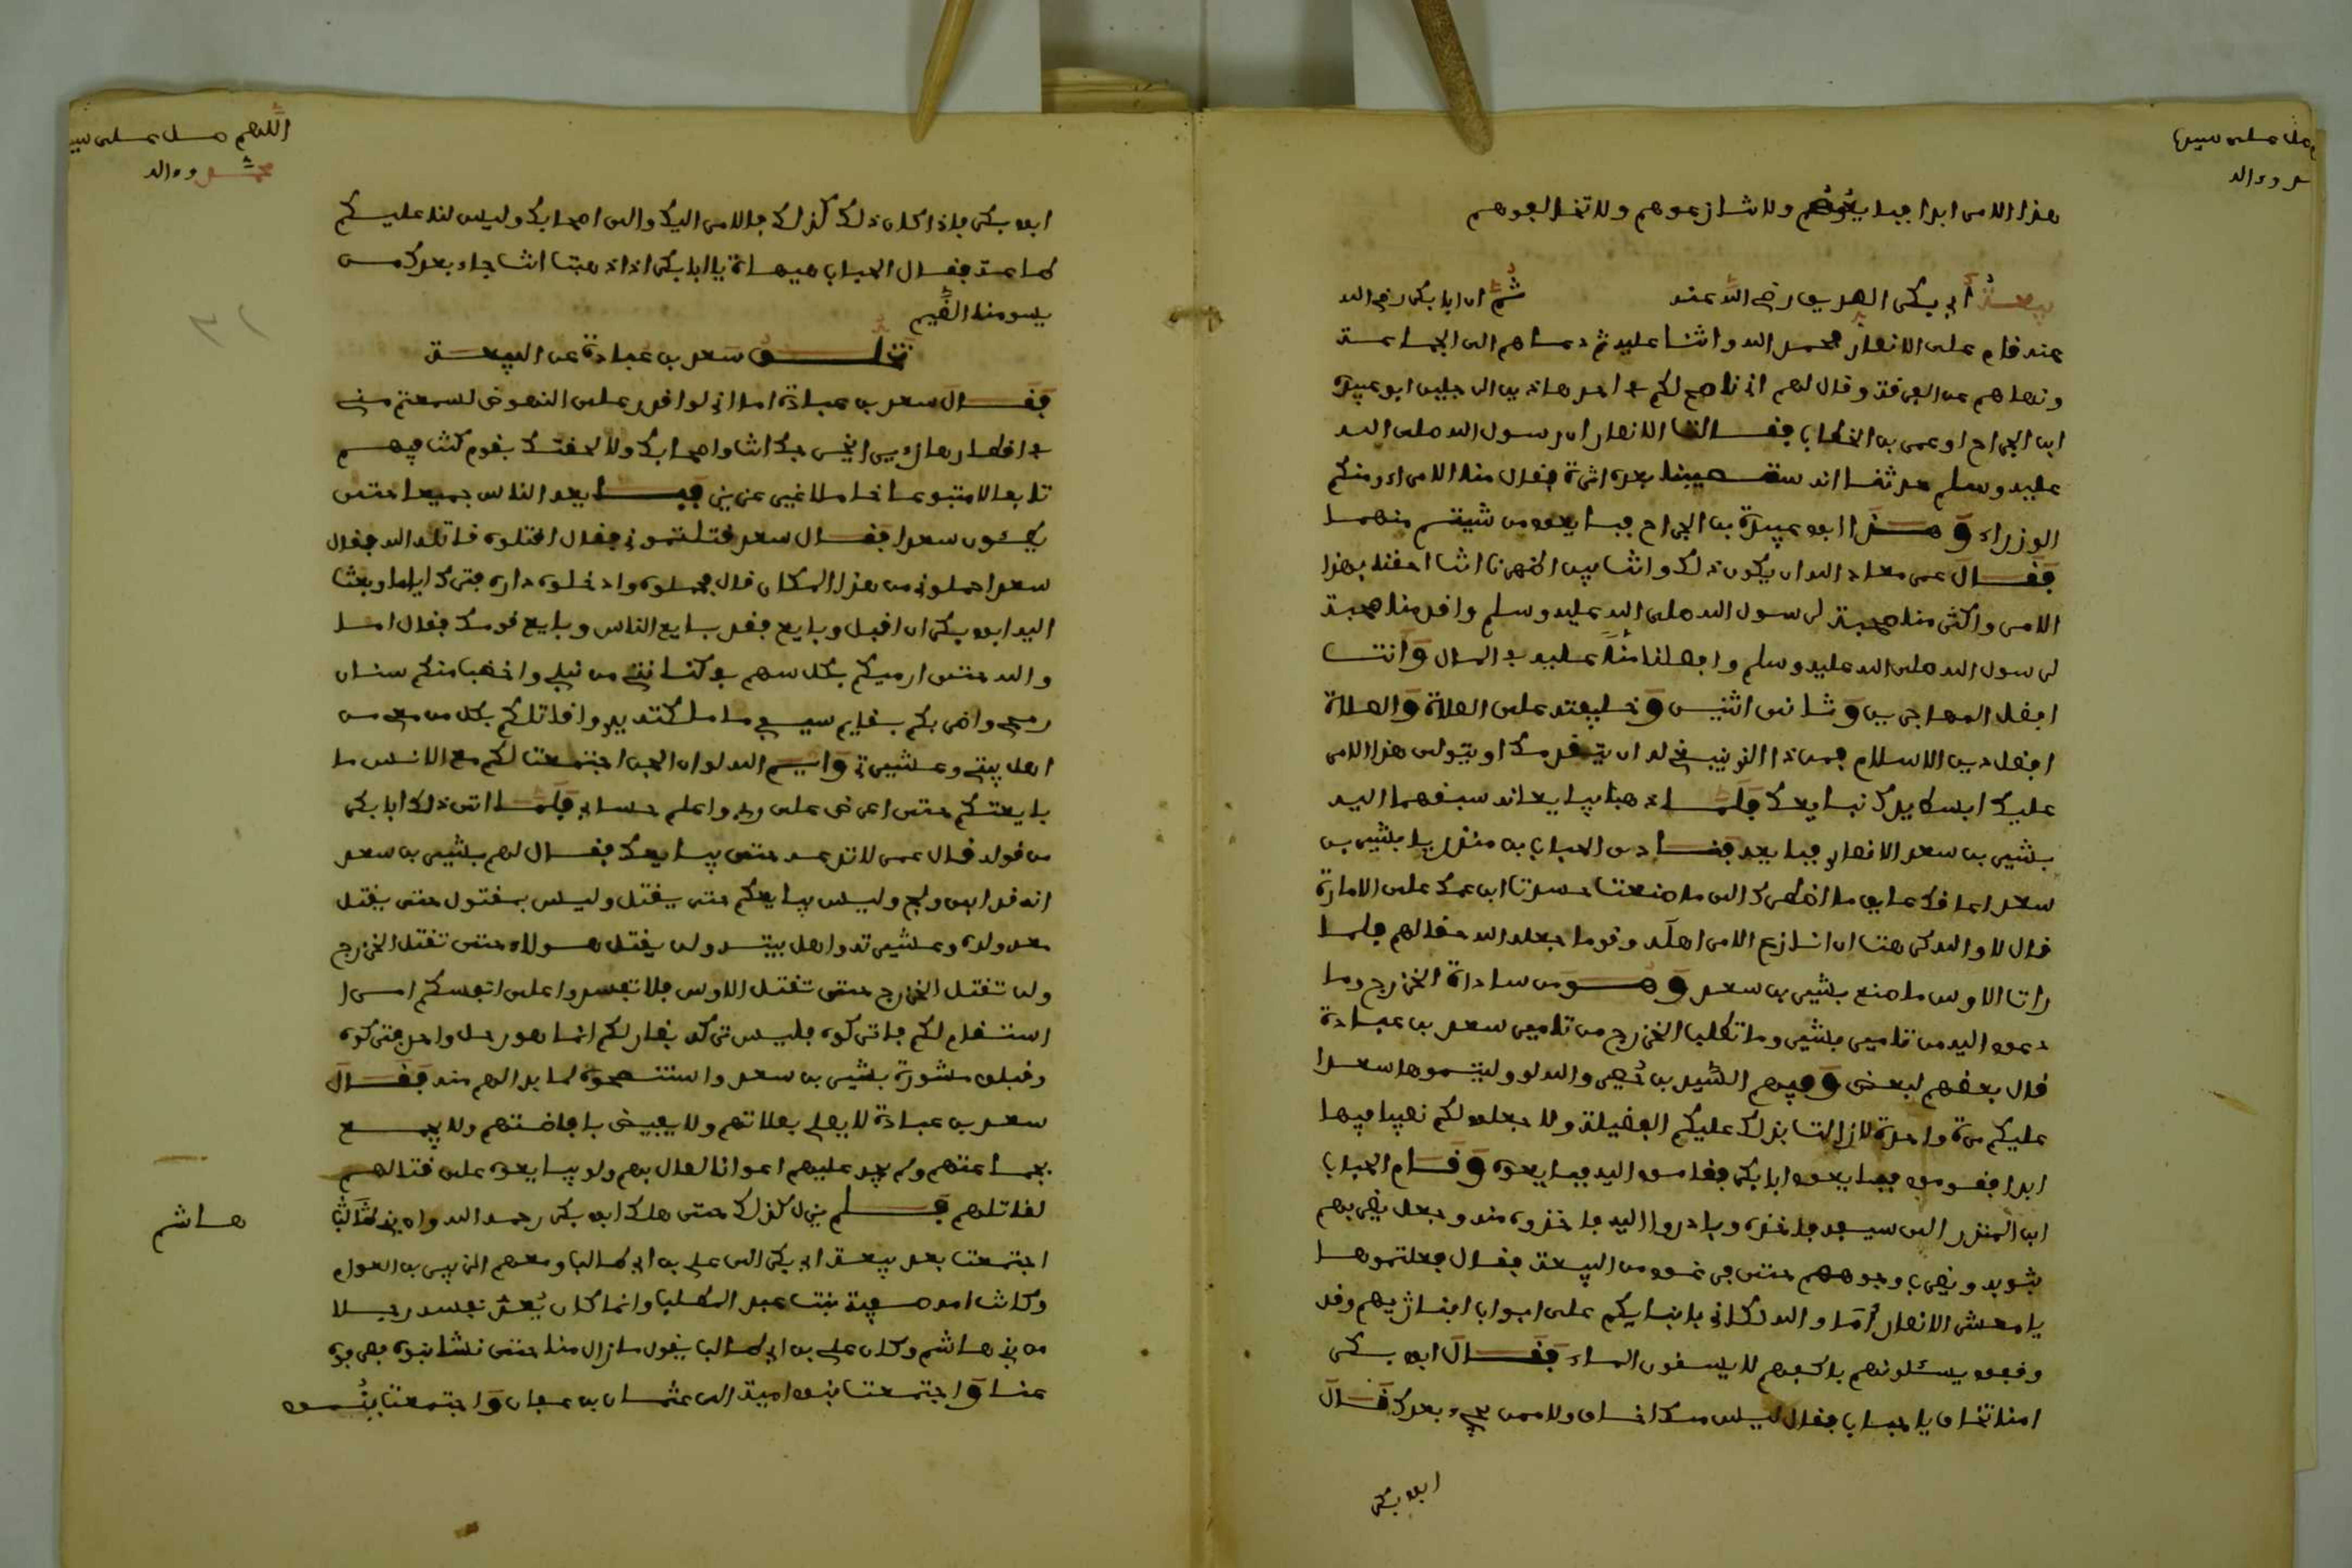 هذا الامر ابدا فبايعوهم ولا تنازعوهم ولا تخالفوهم
بيعة أبي بكر الصديق رضي الله عنه ثم ان ابا بكر رضي الله
عنه قام على الانصار فحمد الله واثنا عليه ثم دعاهم الى الجماعة
ونهاهم عن الفرقة وقال لهم اني ناصح لكم في احد هاذين الرجلين ابو عبيدة
ابن الجراح او عمر بن الخطاب فقالت الانصار ان رسول الله صلى الله
عليه وسلم حدثنا انه ستصيبنا بعده اثرة فقال منا الامراء ومنكم
الوزراء وهذا ابو عبيدة بن الجراح فبايعوه من شيتم منهما
فقال عمر معاذ الله ان يكون ذلك وانت بين اظهرنا انت احقنا بهذا
الامر واكثر منا صحبة لرسول الله صلى الله عليه وسلم واقدمنا صحبة
لرسول الله صلى الله عليه وسلم وافضلنا منا عليه في المال وانت
افضل المهاجرين وثاني اثنين وخليفته على الصلاة والصلاة
افضل دين الاسلام فمن ذا الذي ينبغي له ان يتقدمك او يتولى هذا الامر
عليك ابسط يدك نبايعك فلما ذهبا يبايعانه سبقهما اليه
بشير بن سعد الانصاري فبايعه فنادى الحباب بن منذر يا بشير بن
سعد اعاقك عايق ما اضطرك الى ما صنعت حسدت ابن عمك على الامارة
قال لا والله كرهت ان انازع الامر اهله وقوما جعله الله حقا لهم فلما
رات الاوس ما صنع بشير بن سعد وهو من سادات الخزرج وما
دعوه اليه من تامير بشير وما تطلب الخزرج من تامير سعد بن عبادة
قال بعضهم لبعض وفيهم اسيد بن حضير والله لو وليتموها سعدا
عليكم مرة واحدة لا زالت بذلك عليكم الفضيلة ولا جعلوا لكم نصيبا فيها
ابدا فقوموا فبايعوا ابا بكر فقاموا اليه فبايعوه وقام الحباب
ابن المنذر الى سيفه فاخذه وبادروا اليه فاخذوه منه وجعل يضربهم
بثوبه ويضرب وجوههم حتى فرغوا من البيعة فقال فعلتموها
يا معشر الانصار اما والله لكاني بابنايكم على ابواب ابنائهم وقد
وقفوا يسئلونهم باكفهم لا يسقون الماء فقال ابو بكر
امنا تخاف يا حباب فقال ليس منك اخاف ولا ممن يجيء بعدك فقال
ابو بكر
ابو بكر فاذا كان ذلك كذلك فالامر اليك والى اصحابك وليس لنا عليكم
طاعة فقال الحباب هيهات يا ابا بكر اذا ذهبت انت جاء بعدك من
يسومنا الضيم
تخلف سعد بن عبادة عن البيعة
فقال سعد بن عبادة اما اني لو اقدر على النهوض لسمعتم مني
في اقطارها زئيرا يخرجك انت واصحابك ولالحقتك بقوم كنت فيهم
تابعا لا متبوعا خاملا غير عزيز فبايعه الناس جميعا حتى
يطئون سعدا فقال سعد قتلتموني فقال اقتلوه قاتله الله فقال
سعد احملوني من هذا المكان قال فحملوه وادخلوه داره فترك اياما وبعث
اليه ابو بكر ان اقبل وبايع فقد بايع الناس وبايع قومك فقال اما
والله حتى ارميكم بكل سهم في كنانتي من نبلي واخضب منكم سنان
رمحي واضربكم بقايم سيفي ما ملكته يدي واقاتلكم بكل من معي من
اهل بيتي وعشيرتي وايم الله لو ان الجن اجتمعت لكم مع الانس ما
بايعتكم حتى اعرض على ربي واعلم حسابي فلما اتى ذلك ابا بكر
من قوله قال عمر لا تدعه حتى يبايعك فقال لهم بشير بن سعد
انه قد ابى ولج وليس يبايعكم حتى يقتل وليس بمقتول حتى يقتل
معه ولده وعشيرته واهل بيته ولن يقتل هولاء حتى تقتل الخزرج
ولن تقتل الخزرج حتى تقتل الاوس فلا تفسدوا على انفسكم امرا
استقام لكم فاتركوه فليس تركه بضار لكم انما هو رجل واحد فتركوه
وقبلوا مشورة بشير بن سعد واستنصحوه لما بدا لهم منه فقال
سعد بن عبادة لا يصلي بصلاتهم ولا يفيض بافاضتهم ولا يجمع
بجماعتهم ولم يجد عليهم اعوانا لصال بهم ولو يبايعوه على قتالهم
لقاتلهم فلم يزل كذلك حتى هلك ابو بكر رحمه الله وان بني هاشم
اجتمعت بعد بيعة ابي بكر الى علي بن ابي طالب ومعهم الزبير بن العوام
وكانت امه صفية بنت عبد المطلب وانما كان يعد نفسه رجلا
من بني هاشم وكان علي بن ابي طالب يقول ما زال منا حتى نشا بنوه فصرفوه
عنا واجتمعت بنو امية الى عثمان بن عفان واجتمعت بنو
هاشم
اللهم صل على سي
محمد وءاله
صل على سيدنا
وءاله